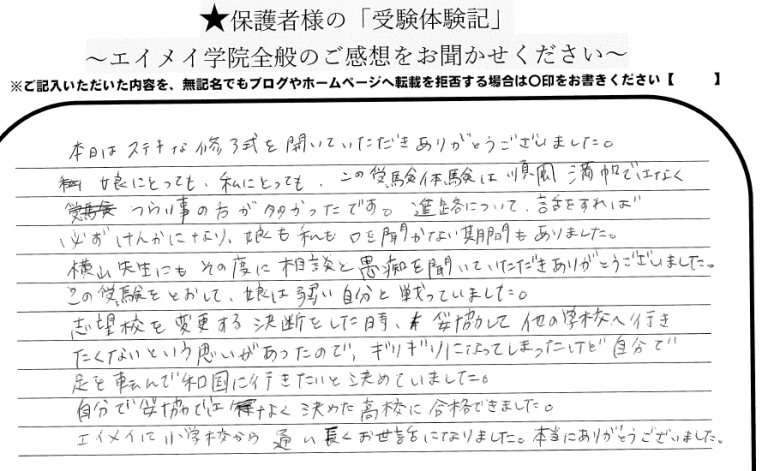 ★保護者様の「受験体験記」
~エイメイ学院全般のご感想をお聞かせください~
※ご記入いただいた内容を、無記名でもブログやホームページへ転載を拒否する場合は〇印をお書きください【　　】
本日はステキな修了式を開いていただきありがとうございました。
娘にとっても、私にとっても、この受験体験は順風満帆ではなく
つらい事の方が多かったです。進路について、話をすれば
必ずけんかになり、娘も私も口を聞かない期間もありました。
横山先生にもその度に相談と愚痴を聞いていただきありがとうございました。
この受験をとおして、娘は弱い自分と戦っていました。
志望校を変更する決断をした時、妥協して他の学校へ行き
たくないという思いがあったので、ギリギリになってしまったけど自分で
足を転んで和国に行きたいと決めていました。
自分で妥協ではなく決めた高校に合格できました。
エイメイに小学校から通い長くお世話になりました。本当にありがとうございました。